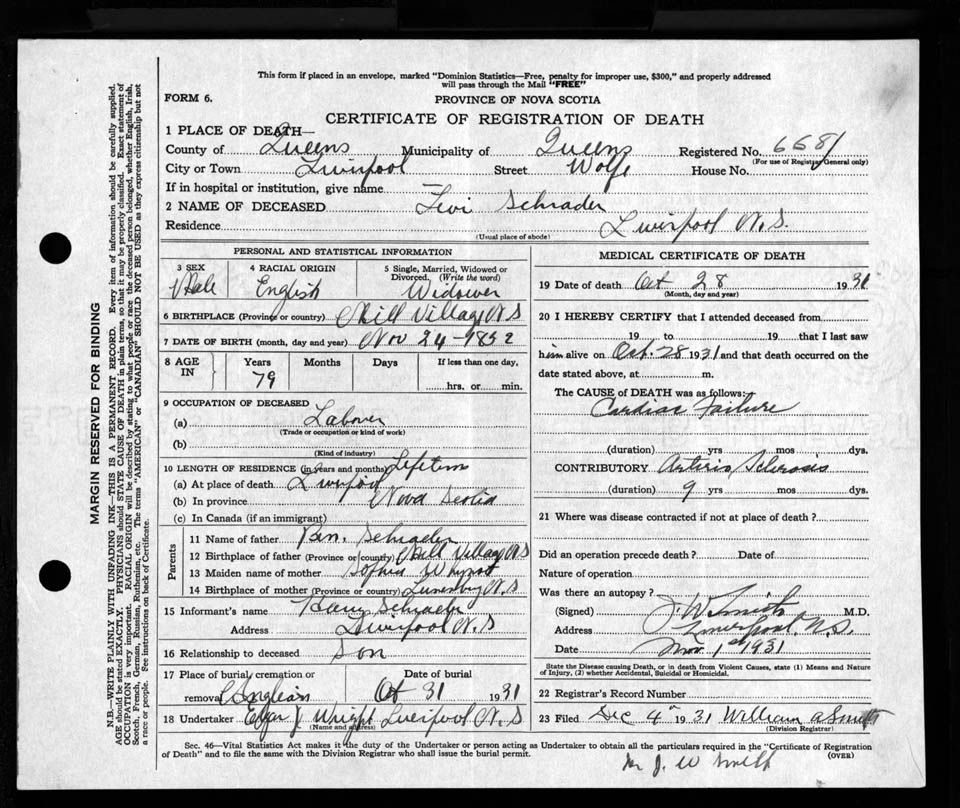 This form if placed in an envelope, marked "Dominion Statistics—Free, penalty for improper use, $300," and properly addressed
will pass through the Mail "FREE"
FORM 6.
PROVINCE OF NOVA SCOTIA
CERTIFICATE OF REGISTRATION OF DEATH
1 PLACE OF DEATH—
County of Queens Municipality of Queens Registered No. 6681
(For use of Registrar General only)
City or Town Liverpool Street Wolfe House No.
If in hospital or institution, give name —
2 NAME OF DECEASED Levi Schrader
Residence Liverpool N.S.
(Usual place of abode)
PERSONAL AND STATISTICAL INFORMATION
3 SEX Male
4 RACIAL ORIGIN English
5 Single, Married, Widowed or Divorced. (Write the word) Widower
6 BIRTHPLACE (Province or country) Mill Village N S
7 DATE OF BIRTH (month, day and year) Nov 24 - 1852
8 AGE IN Years 79 Months Days If less than one day, hrs. or min.
9 OCCUPATION OF DECEASED
(a) Laborer
(Trade or occupation or kind of work)
(b)
(Kind of industry)
10 LENGTH OF RESIDENCE (in years and months) Lifetime
(a) At place of death Liverpool
(b) In province Nova Scotia
(c) In Canada (if an immigrant)
Parents
11 Name of father Ben. Schrader
12 Birthplace of father (Province or country) Mill Village N S
13 Maiden name of mother Sophia
14 Birthplace of mother (Province or country) Lunenburg N.S
15 Informant's name Harry Schrader
Address Liverpool N.S
16 Relationship to deceased Son
17 Place of burial, cremation or removal Date of burial Oct 31 1931
18 Undertaker Edgar J Wright Liverpool N.S
(Name and address)
MEDICAL CERTIFICATE OF DEATH
19 Date of death Oct 28 1931
(Month, day and year)
20 I HEREBY CERTIFY that I attended deceased from
19 to 19 that I last saw
him alive on Oct. 28 1931 and that death occurred on the
date stated above, at m.
The CAUSE of DEATH was as follows:
Cardiac Failure
(duration) yrs mos dys.
CONTRIBUTORY Arterio Sclerosis
(duration) 9 yrs mos dys.
21 Where was disease contracted if not at place of death?
Did an operation precede death? Date of
Nature of operation
Was there an autopsy?
(Signed) J. W. Smith M.D.
Address Liverpool, N.S.
Date Nov. 1st 1931
State the Disease causing Death, or in death from Violent Causes, state (1) Means and Nature
of Injury, (2) whether Accidental, Suicidal or Homicidal.
22 Registrar's Record Number
23 Filed Dec 4th 1931 William A Smith
(Division Registrar)
Sec. 46—Vital Statistics Act makes it the duty of the Undertaker or person acting as Undertaker to obtain all the particulars required in the "Certificate of Registration
of Death" and to file the same with the Division Registrar who shall issue the burial permit.
(OVER)
J. W Smith
MARGIN RESERVED FOR BINDING
N.B.—WRITE PLAINLY WITH UNFADING INK—THIS IS A PERMANENT RECORD. Every item of information should be carefully supplied.
AGE should be stated EXACTLY. PHYSICIANS should STATE CAUSE OF DEATH in plain terms, so that it may be properly classified. Exact statement of
OCCUPATION is very important. RACIAL ORIGIN will be described by stating to what people or race the deceased person belonged, whether English, Irish,
Scotch, French, German, Russian, Ruthenian, etc. The terms "AMERICAN" or "CANADIAN" SHOULD NOT BE USED as they express citizenship but not
a race or people. See instructions on back of Certificate.